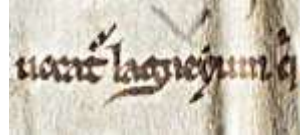 uocat̄ lagneẏum q̄